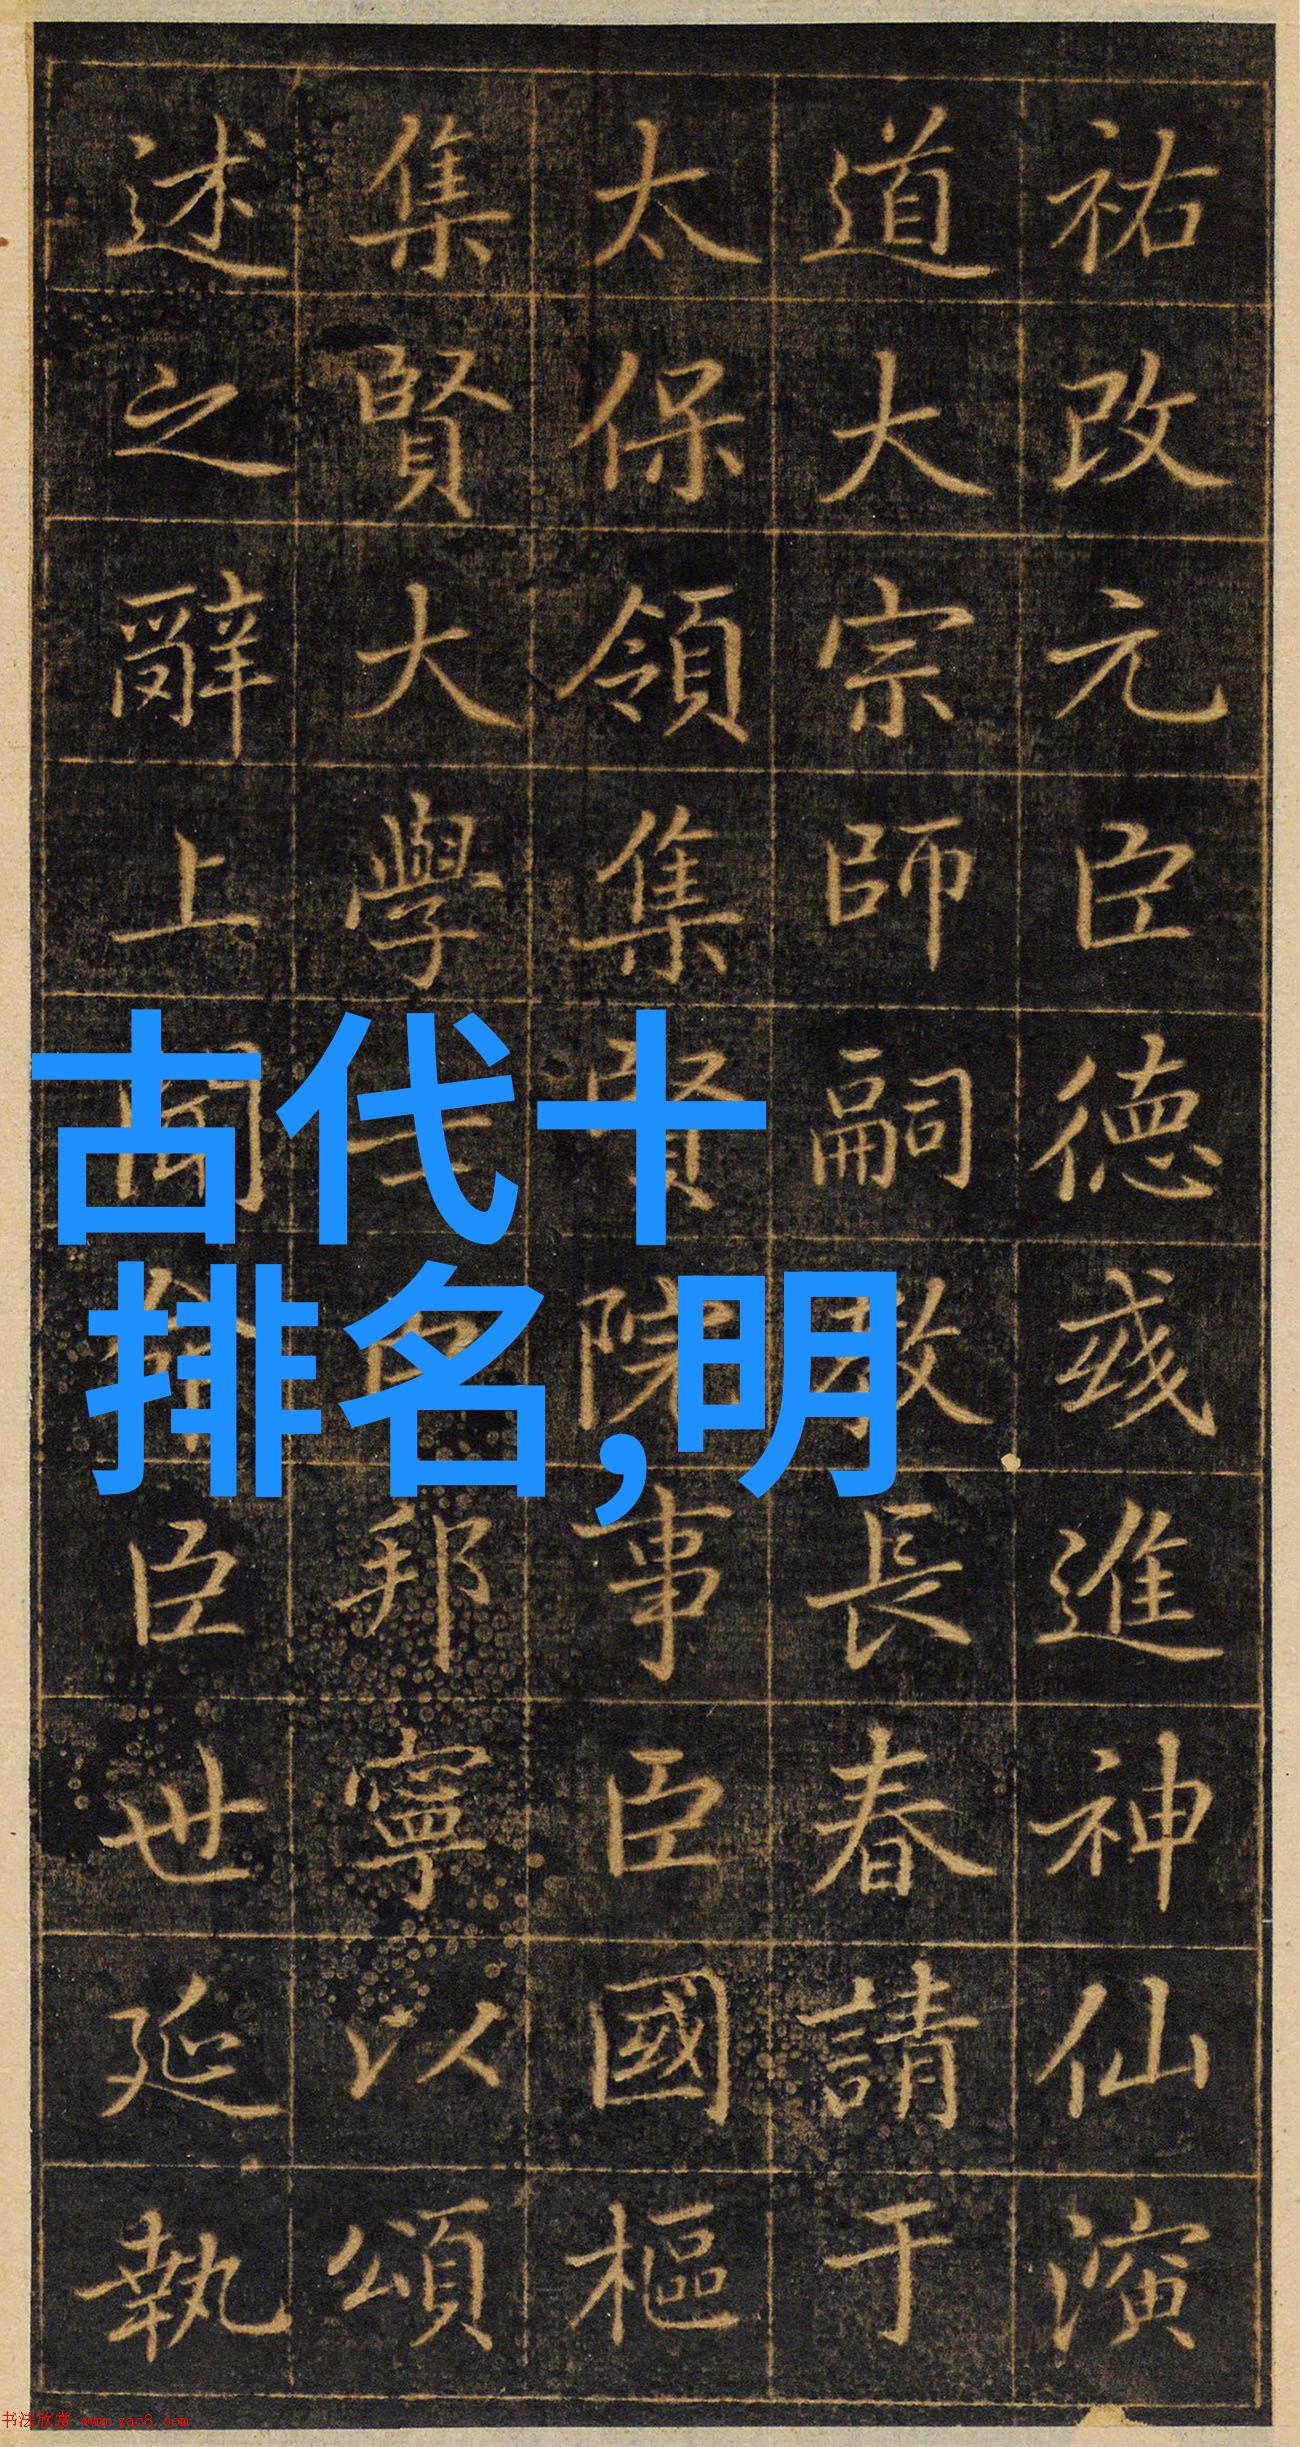 祐改元臣德彧進神仙演
道大宗師嗣教長春請于
太保領集賢院事臣國樞
集賢大學士臣邦寧以頌
述之辭上聞臣世延執
古代十
排名,明
书法欣赏 www.yac8.com